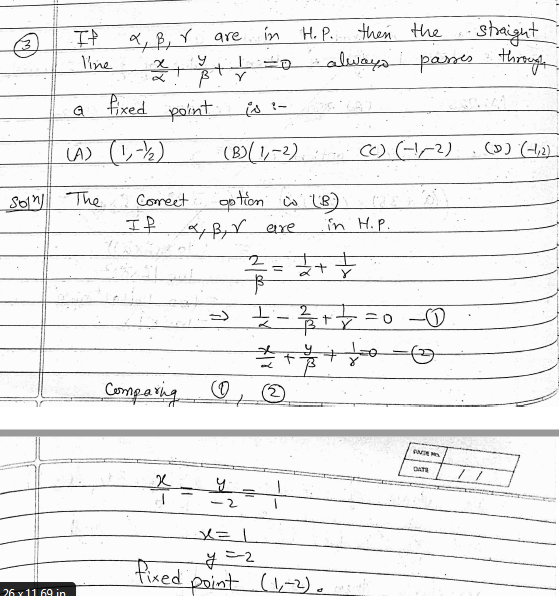 ③ If α, β, γ are in H.P. then the straight
line x/α + y/β + 1/γ = 0 always passes through
a fixed point is :-
(A) (1, -1/2) (B) (1, -2) (C) (-1, -2) (D) (-1, 2)
Solⁿ) The Correct option is (B)
If α, β, γ are in H.P.
2/β = 1/α + 1/γ
⇒ 1/α - 2/β + 1/γ = 0 —①
x/α + y/β + 1/γ = 0 —②
Comparing ①, ②
PAGE No.
DATE / /
x/1 = y/-2 = 1/1
x = 1
y = -2
fixed point (1, -2).
26 x 11.69 in